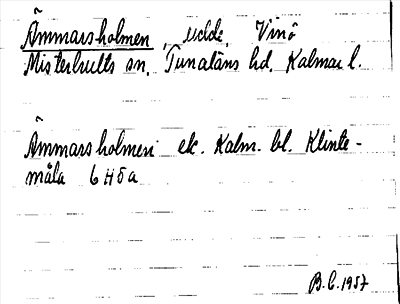 Ämmarsholmen, udde, Vinö
Misterhults sn, Tunaläns hd, Kalmar l.
Ämmarsholmen ek. Kalm. bl. Klinte-
måla 6 H 5 a
B.C. 1957